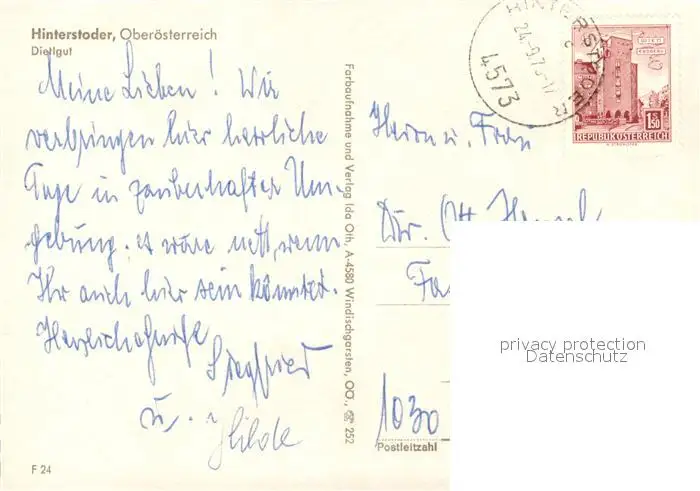 Hinterstoder, Oberösterreich
Dietlgut
Meine Lieben! Wir
verbringen hier herrliche
Tage in zauberhafter Um-
gebung. Es wäre nett, wenn
Ihr auch hier sein könntet.
Herzliche Grüße
Siegfried
u.
Hilde
F 24
Farbaufnahme und Verlag Ida Oth, A-4580 Windischgarsten, OÖ., ☎ 252
HINTERSTODER
24.-9.73-17
c
4573
WIEN
ERDBERG
1.50
REPUBLIK ÖSTERREICH
Herrn u. Frau
Dir. Ott
1030
Postleitzahl
privacy protection
Datenschutz